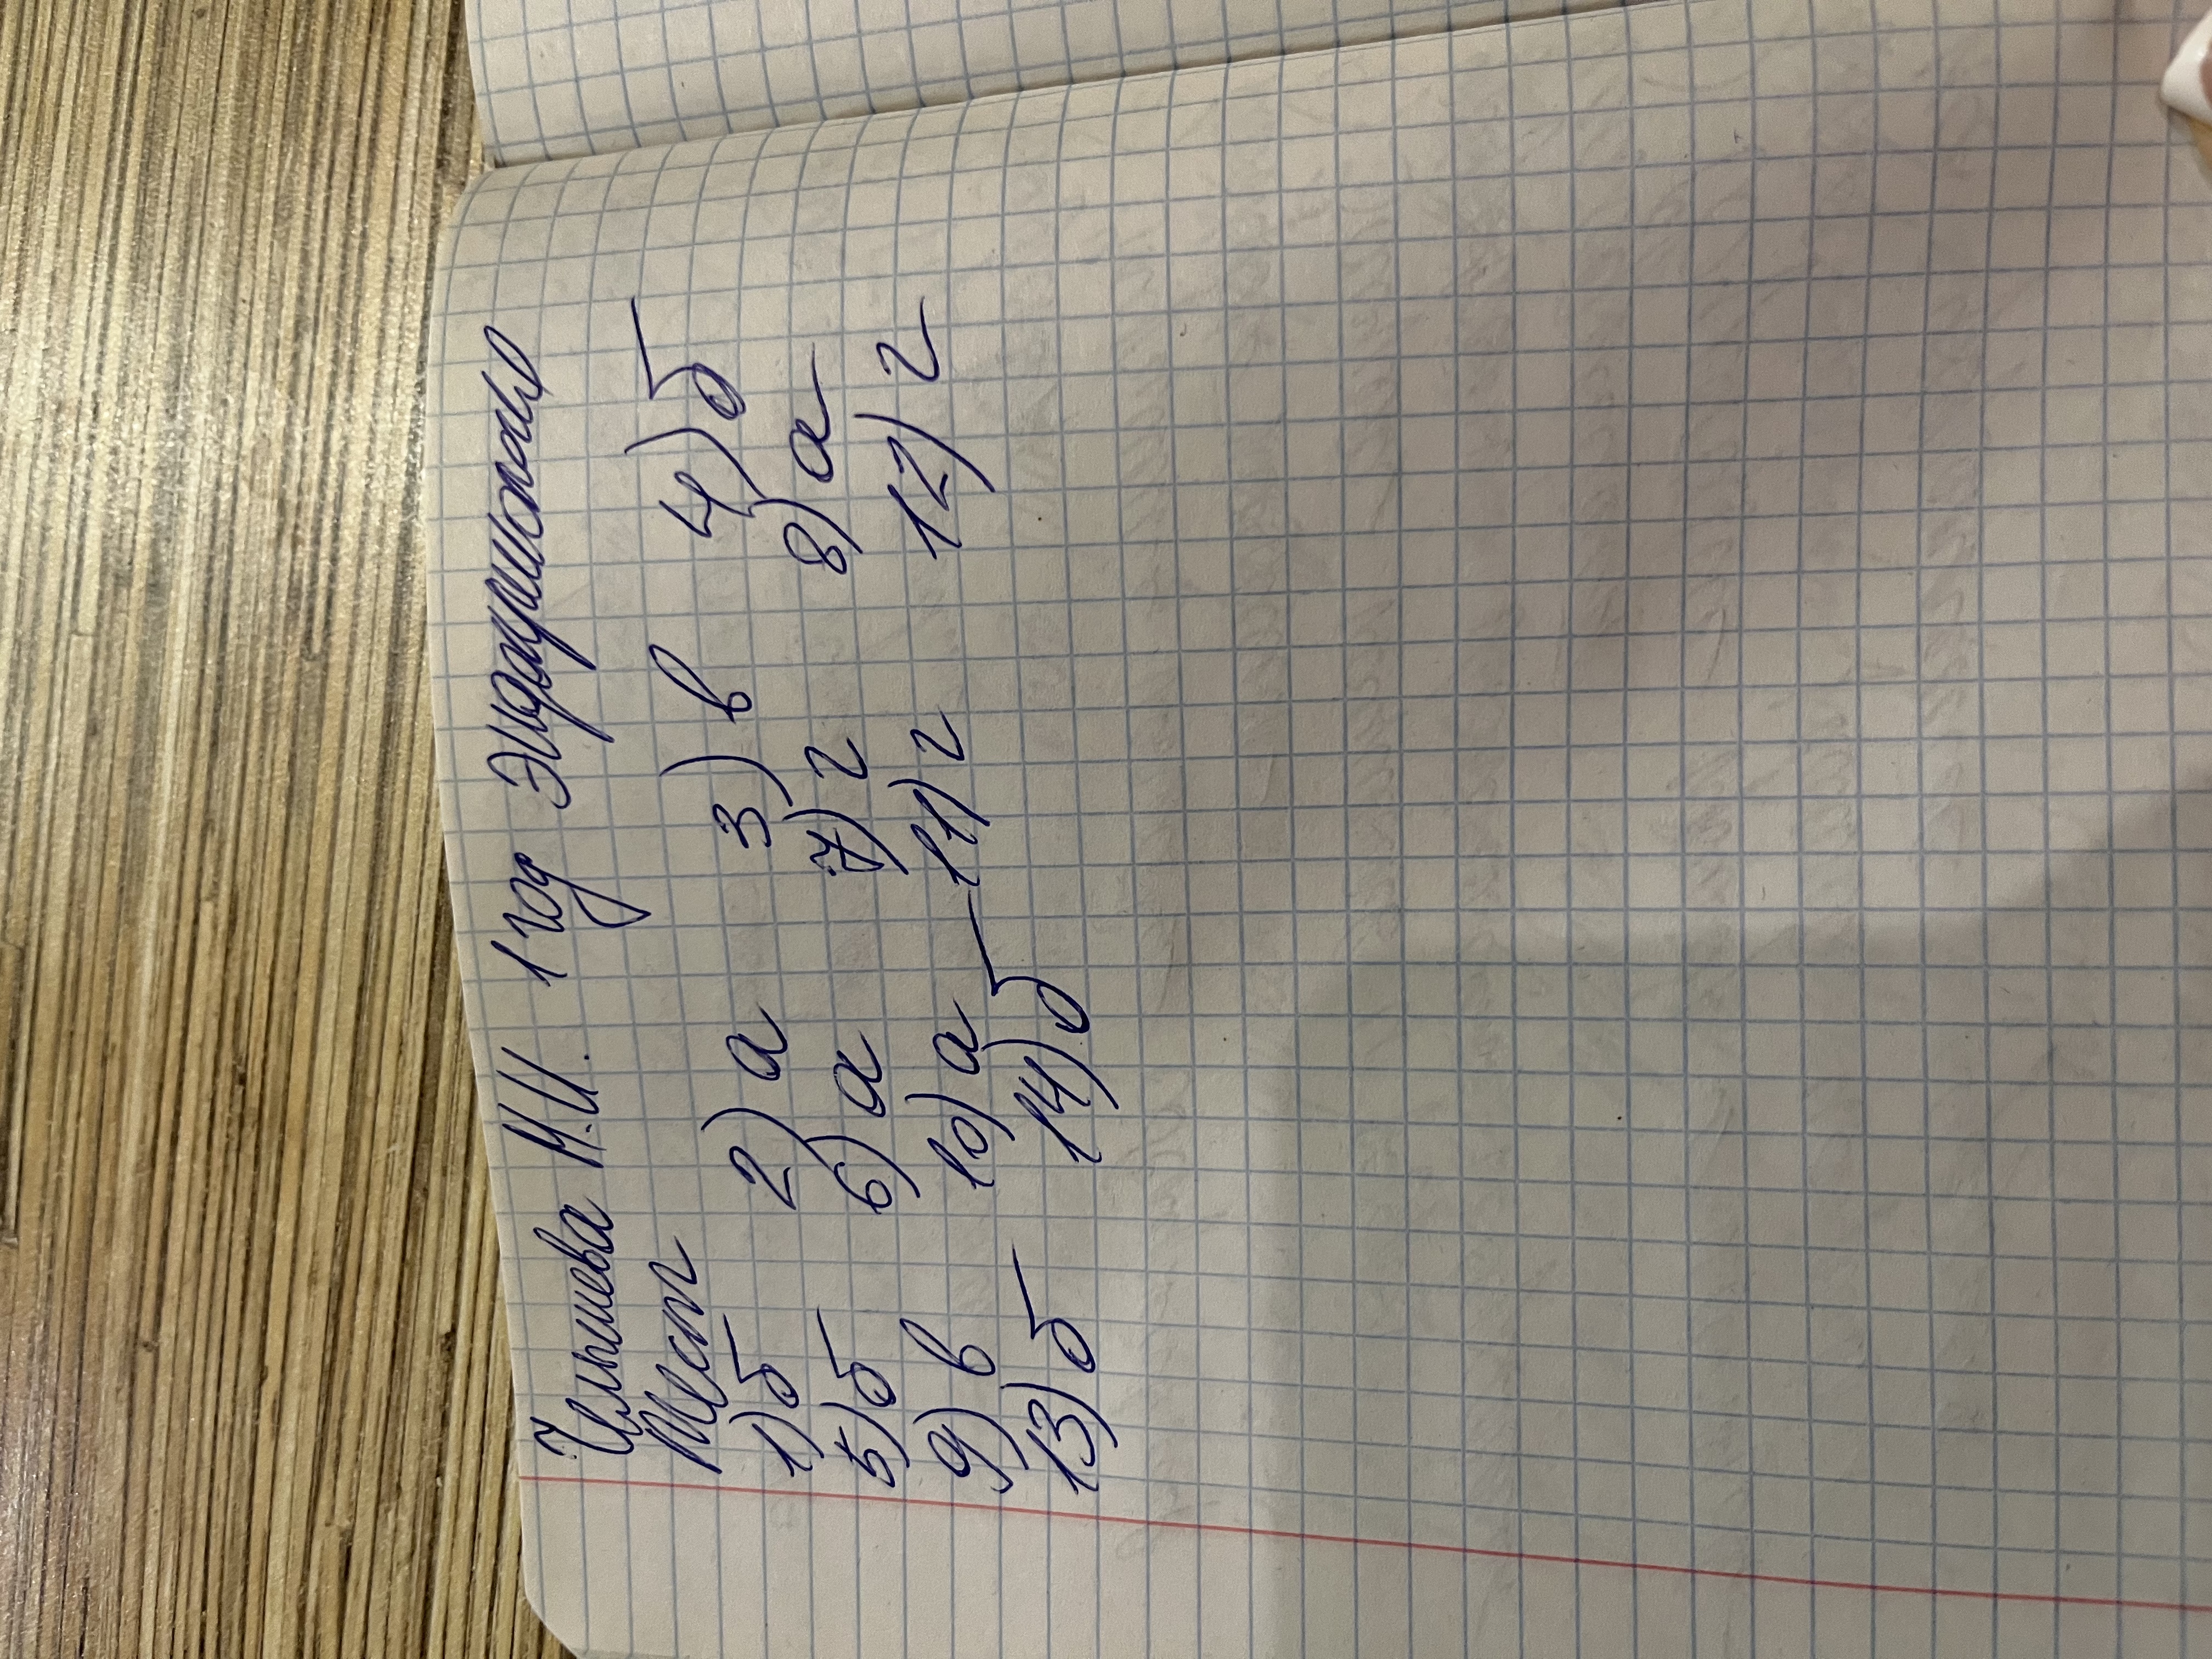 М.И. 1 год Эндокринолог
Тест
1) б 2) а 3) в 4) б
5) б 6) а 7) г 8) а
9) в 10) а 11) г 12) г
13) б 14) б